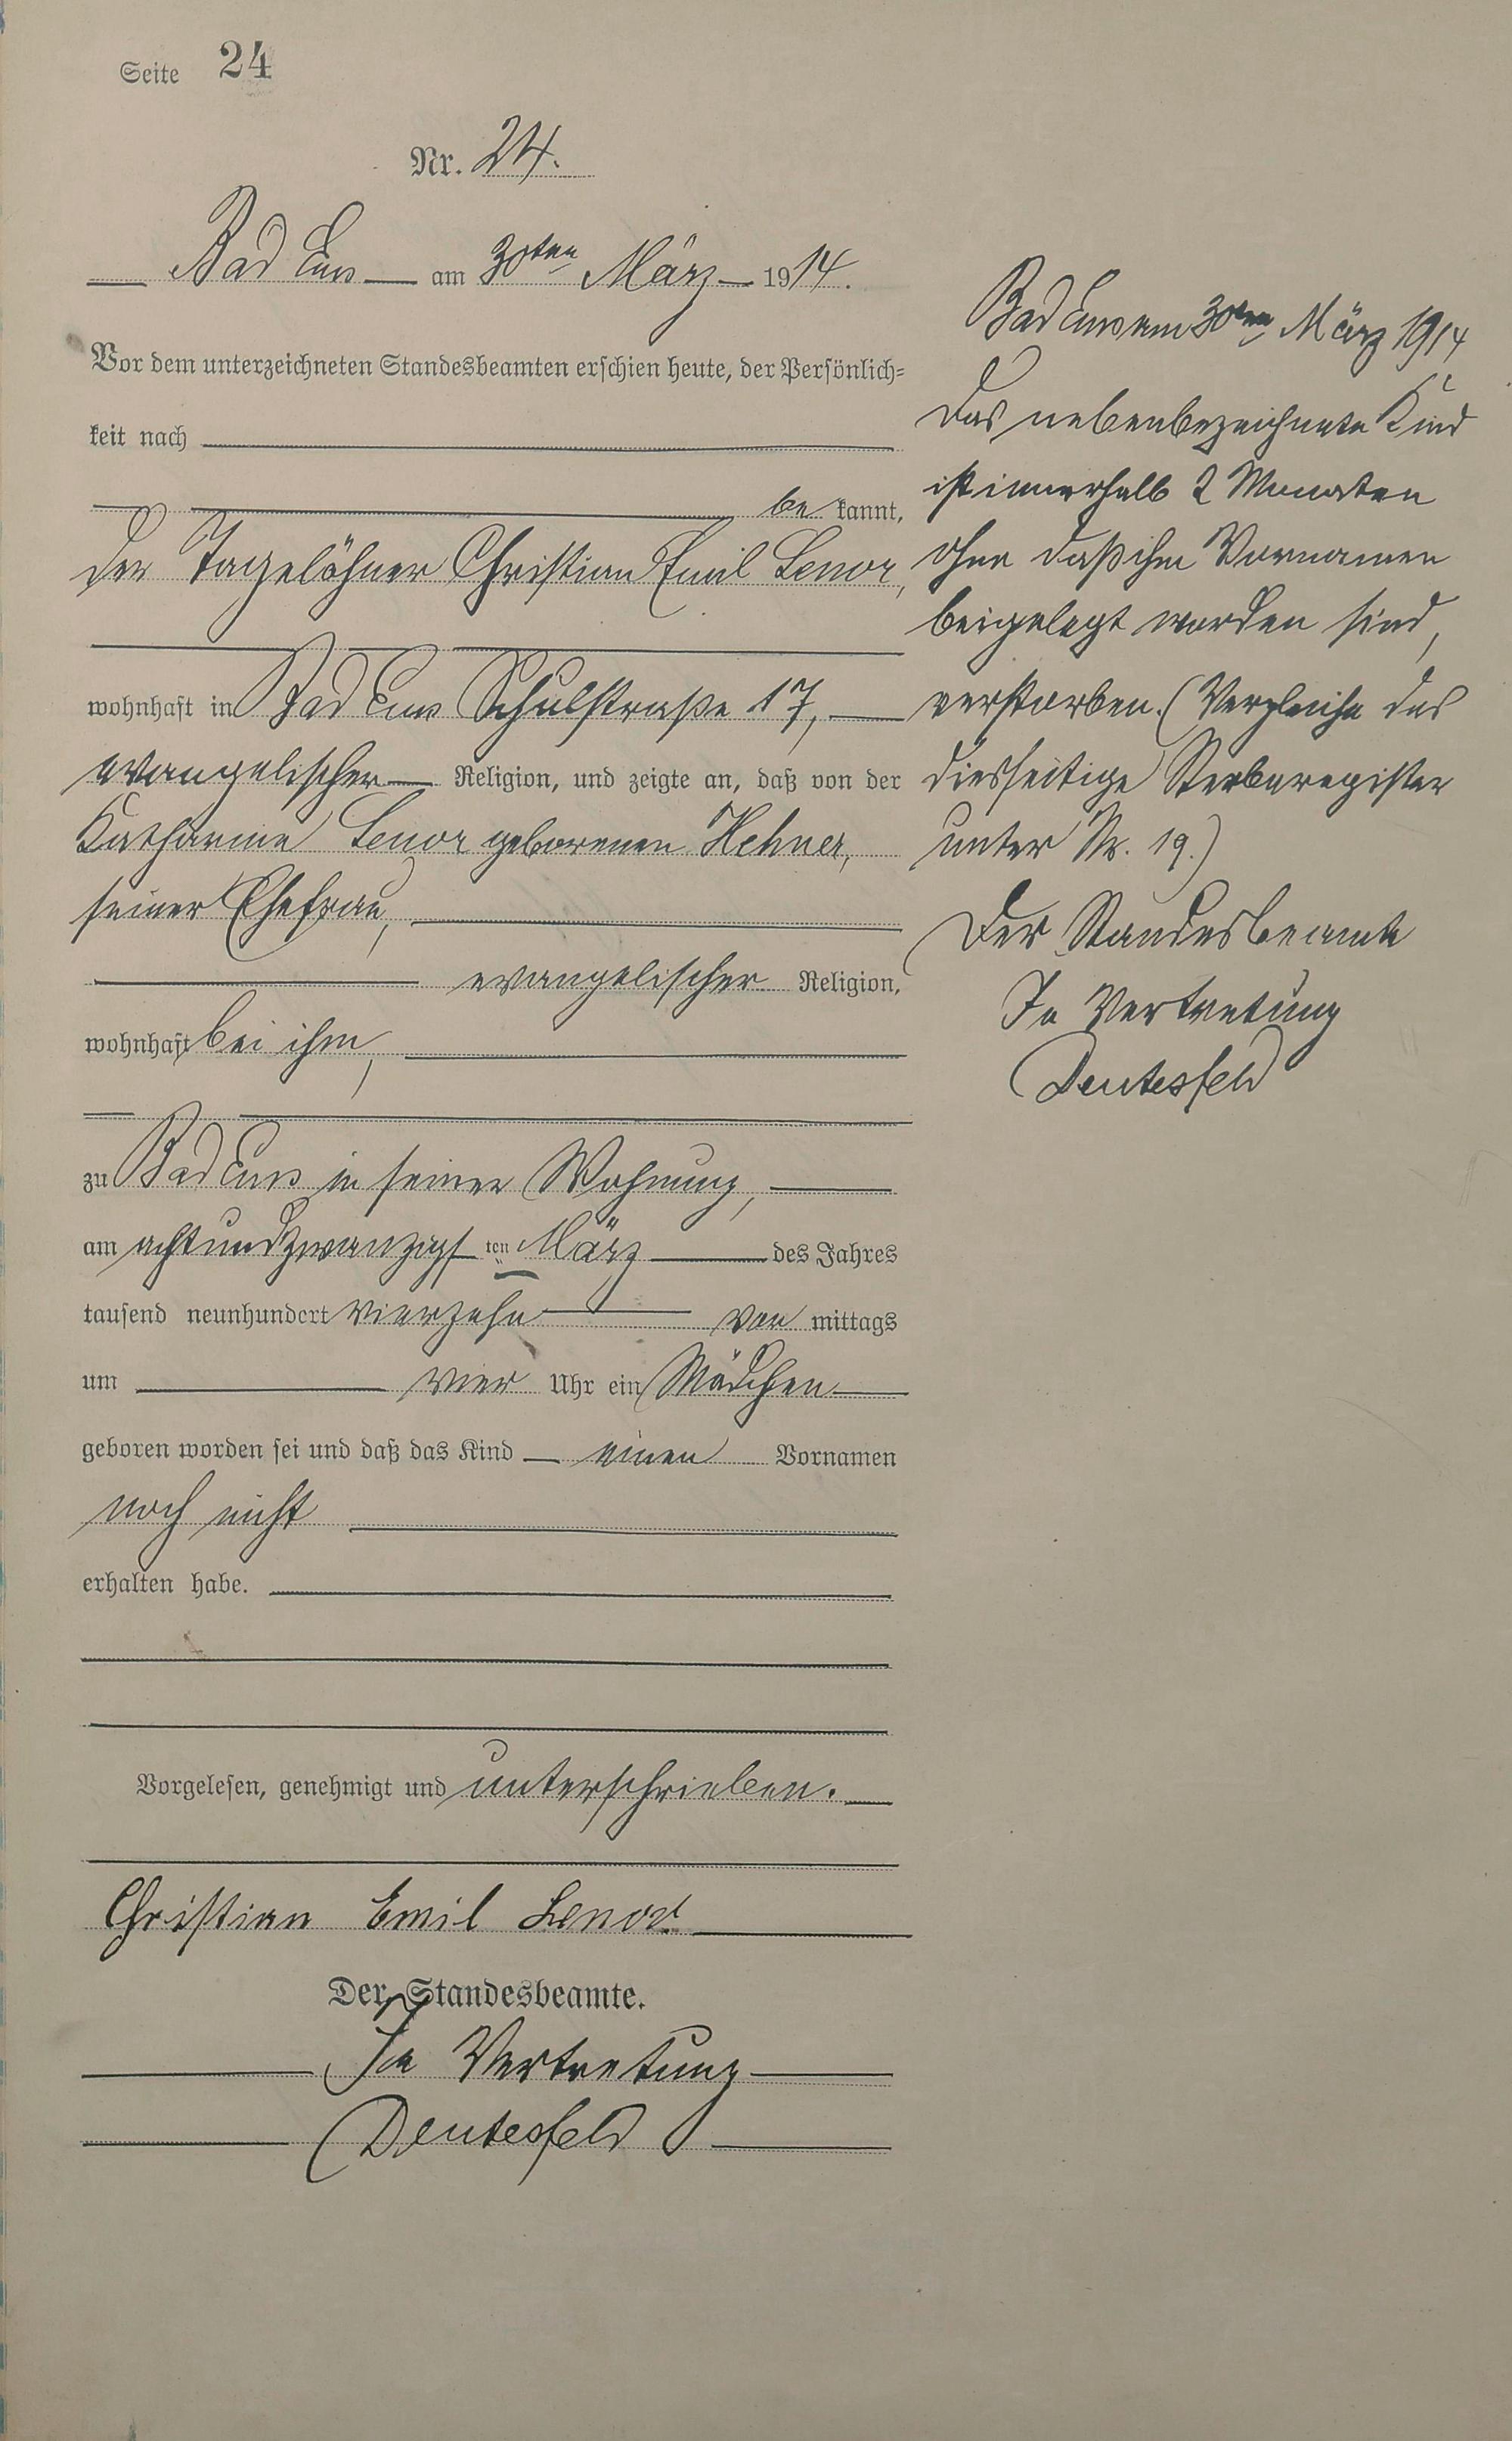 Seite 24
Nr. 24.
Bad Ems am 30ten März 1914.
Vor dem unterzeichneten Standesbeamten erschien heute, der Persönlich=
keit nach
be kannt,
der Tagelöhner Christian Emil Lenor,
wohnhaft in Bad Ems Schulstraße 17,
evangelischer Religion, und zeigte an, daß von der
Katharina Lenor geborenen Hehner,
seiner Ehefrau,
evangelischer Religion,
wohnhaft bei ihm,
zu Bad Ems in seiner Wohnung,
am achtundzwanzigsten März des Jahres
tausend neunhundert vierzehn vor mittags
um vier Uhr ein Mädchen
geboren worden sei und daß das Kind einen Vornamen
noch nicht
erhalten habe.
Vorgelesen, genehmigt und unterschrieben.
Christian Emil Lenor
Der Standesbeamte.
In Vertretung
Deutesfeld
Bad Ems am 30ten März 1914
Das nebenbezeichnete Kind
ist innerhalb 2 Monaten
ohne daß ihm Vornamen
beigelegt worden sind,
verstorben. (Vergleiche das
diesseitige Sterberegister
unter Nr. 19.)
Der Standesbeamte
In Vertretung
Deutesfeld